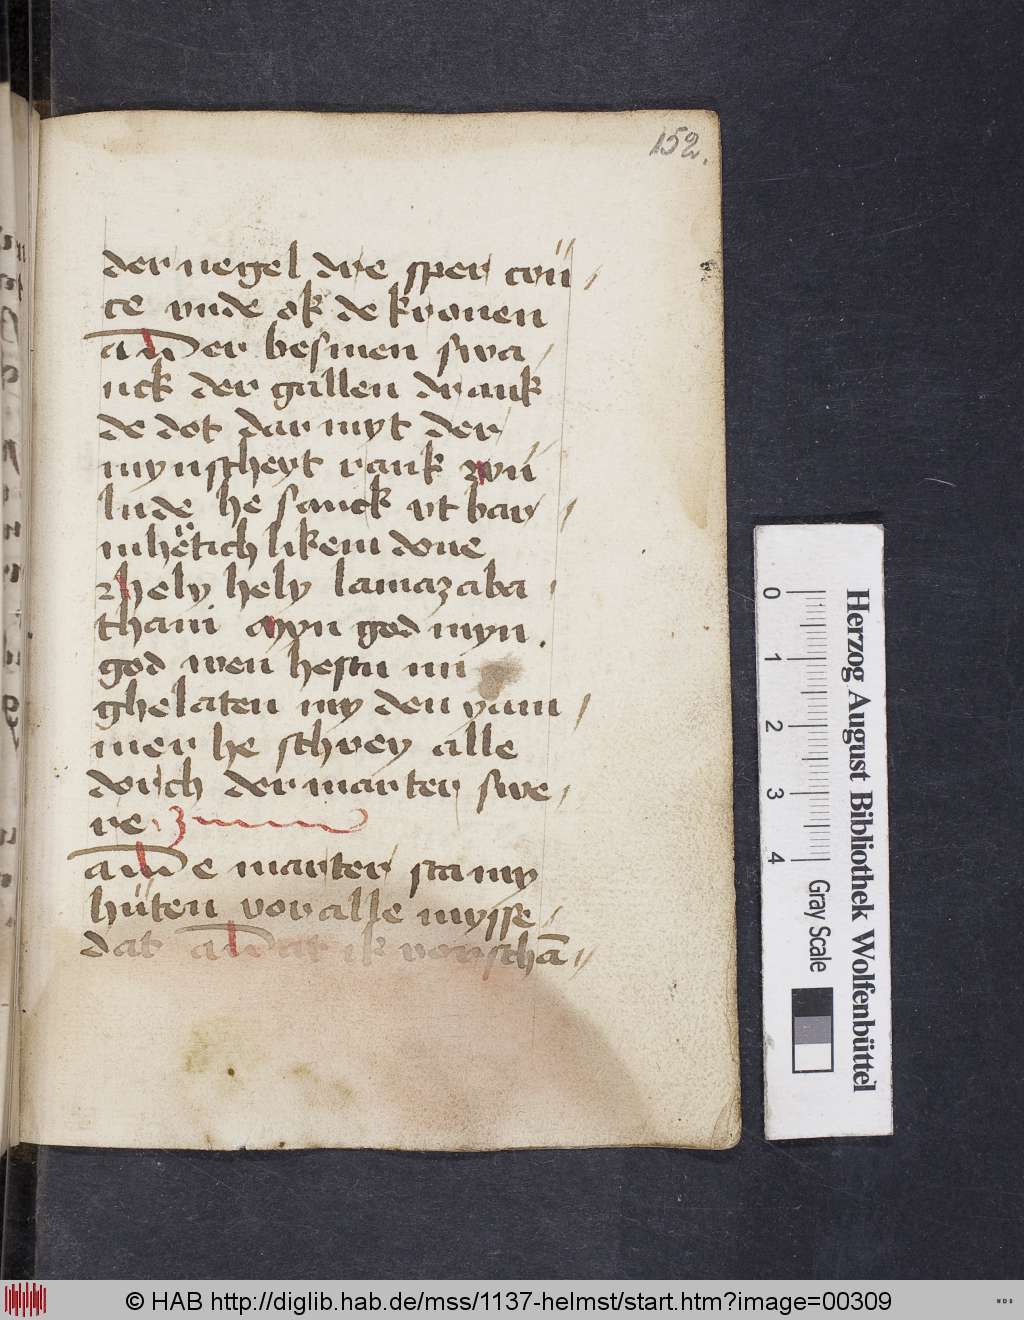 152.
der negel dre sper crü /
ce vnde ok de kronen
a der besmen swa /
nck der gallen drank
de dot dar myt der
mynscheyt rank vn̄
lude he sanck vt bar /
mhe tich likem done
hely hely lamazaba /
thani Myn god myn
god wen hestu mi
ghelaten my den yam /
mer he schrey alle
dorch der marter swe /
re
de marter sta my
hüten vor alle mysse /
dat dat ik vor schā //
0 1 2 3 4
Herzog August Bibliothek Wolfenbüttel
Gray Scale
© HAB http://diglib.hab.de/mss/1137-helmst/start.htm?image=00309